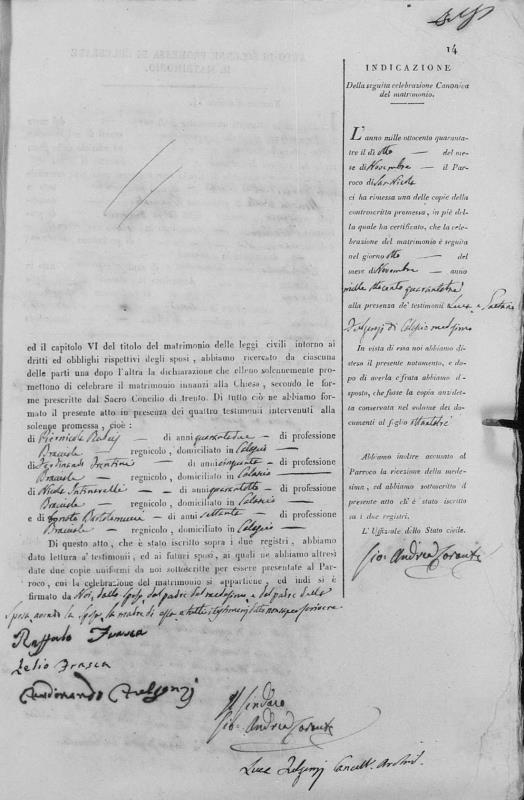 14
INDICAZIONE
Della seguita celebrazione Canonica
del matrimonio.
L'anno mille ottocento quaranta-
tre il dì otto — del me-
se di Novembre — il Par-
roco di San Nicola
ci ha rimessa una delle copie della
controscritta promessa, in piè del-
la quale ha certificato, che la cele-
brazione del matrimonio è seguita
nel giorno otto — del
mese di Novembre — anno
mille ottocento quarantatre
alla presenza de' testimonii Luca, e Gaetano
di medesimo
In vista di essa noi abbiamo di-
steso il presente notamento, e do-
po di averla cifrata abbiamo di-
sposto, che fusse la copia anzidet-
ta conservata nel volume dei do-
cumenti al foglio
Abbiamo inoltre accusato al
Parroco la ricezione della mede-
sima, ed abbiamo sottoscritto il
presente atto ch'è stato iscritto
su i due registri.
L'Uffiziale dello Stato civile.
Gio: Andrea
ed il capitolo VI del titolo del matrimonio delle leggi civili intorno ai
dritti ed obblighi rispettivi degli sposi, abbiamo ricercato da ciascuna
delle parti una dopo l'altra la dichiarazione che elleno solennemente pro-
mettono di celebrare il matrimonio innanzi alla Chiesa, secondo le for-
me prescritte dal Sacro Concilio di Trento. Di tutto ciò ne abbiamo for-
mato il presente atto in presenza dei quattro testimonii intervenuti alla
solenne promessa, cioè:
di Piernicola — di anni quarantadue — di professione
Bracciale — regnicolo, domiciliato in —
di Ferdinando — di anni cinquanta — di professione
Bracciale — regnicolo, domiciliato in —
di Nicola — di anni quarantotto — di professione
Bracciale — regnicolo, domiciliato in —
e di Bartolomeo — di anni settanta — di professione
Bracciale — regnicolo, domiciliato in —
Di questo atto, che è stato iscritto sopra i due registri, abbiamo
dato lettura a' testimonii, ed ai futuri sposi, ai quali ne abbiamo altresì
date due copie uniformi da noi sottoscritte per essere presentate al Par-
roco, cui la celebrazione del matrimonio si appartiene, ed indi si è
firmato da Noi, dallo sposo dal padre del medesimo, e dal padre della
sposa, avendo la sposa, la madre di essa, e tutti i testimonj detto non saper scrivere
Raffaele Frasca
Lelio Frasca
Ferdinando
Il Sindaco
Gio: Andrea
Luca Cancell. Archiv.